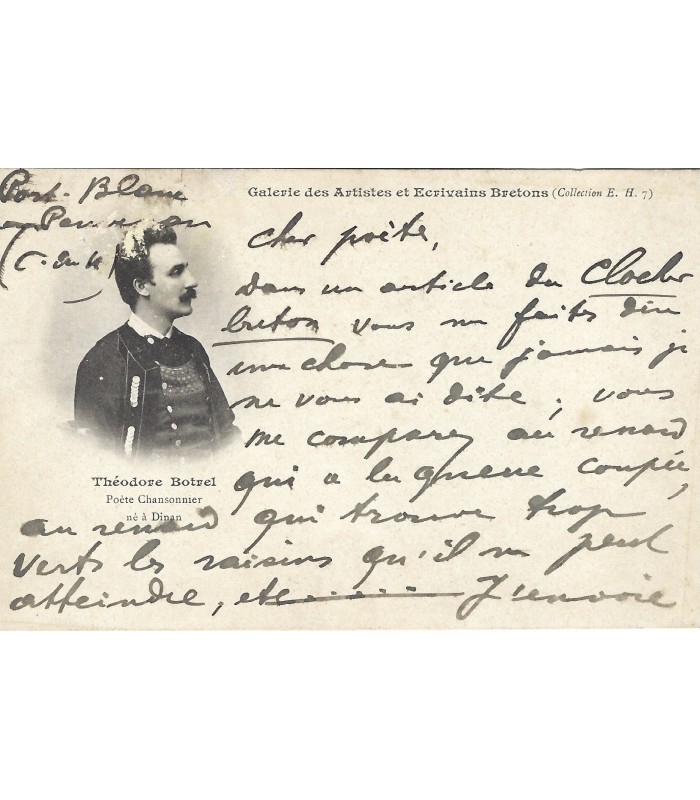 Port-Blanc
en Penvénan
(C. du N)
Galerie des Artistes et Ecrivains Bretons (Collection E. H. 7)
Cher poète,
Dans un article du Clocher
breton vous me faites dire
une chose que jamais je
ne vous ai dite ; vous
me comparez au renard
qui a la queue coupée,
au renard qui trouve trop
verts les raisins qu'il ne peut
atteindre, etc....... J'envoie
Théodore Botrel
Poète Chansonnier
né à Dinan